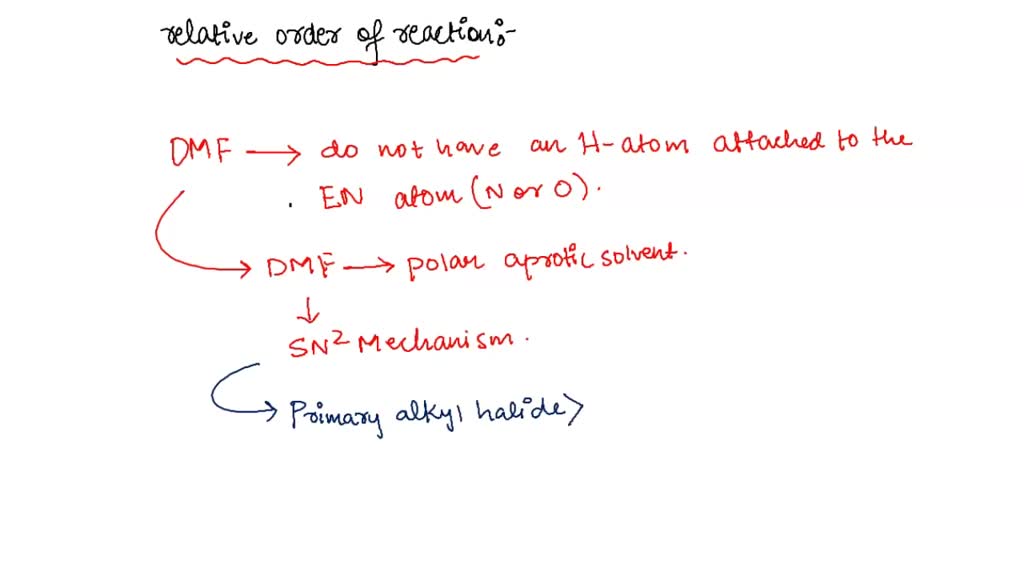 relative order of reaction:-
DMF → do not have an H-atom attached to the
. EN atom (N or O).
DMF → polar aprotic solvent.
↓
SN2 Mechanism.
→ Primary alkyl halide >